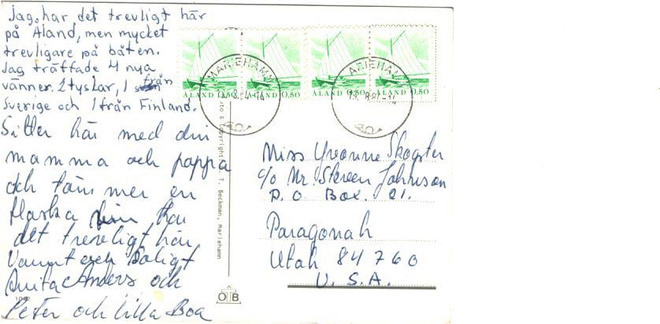 Jag, har det trevligt här
på Åland, men mycket
trevligare på båten.
Jag träffade 4 nya
vänner. 2 tyskar, 1 från
Sverige och 1 från Finland.
Sitter här med din
mamma och pappa
och tömmer en
flaska har
det trevligt här,
Varmt och soligt
Anita Anders och
Peter och lilla Boa
MARIEHAMN
ÅLAND 0,80
ÅLAND 0,80
MARIEHAMN
ÅLAND 0,80
ÅLAND 0,80
Copyright: T. Beckman, Mariehamn
Miss Yvonne
c/o Mr. Steven Johnson
P. O Box. 21.
Paragonah
Utah 84760
U. S. A.